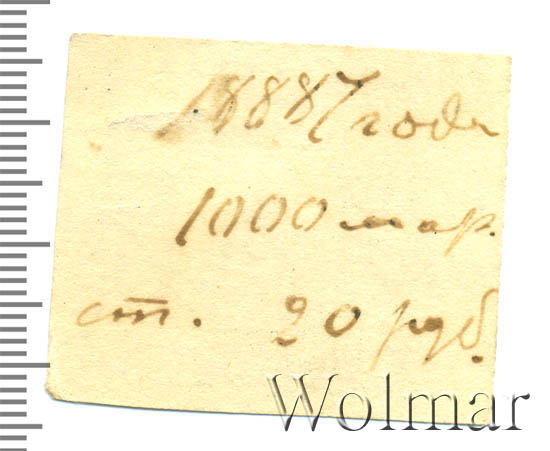 1887 года
1000 мар.
ст. 20 руб.
Wolmar